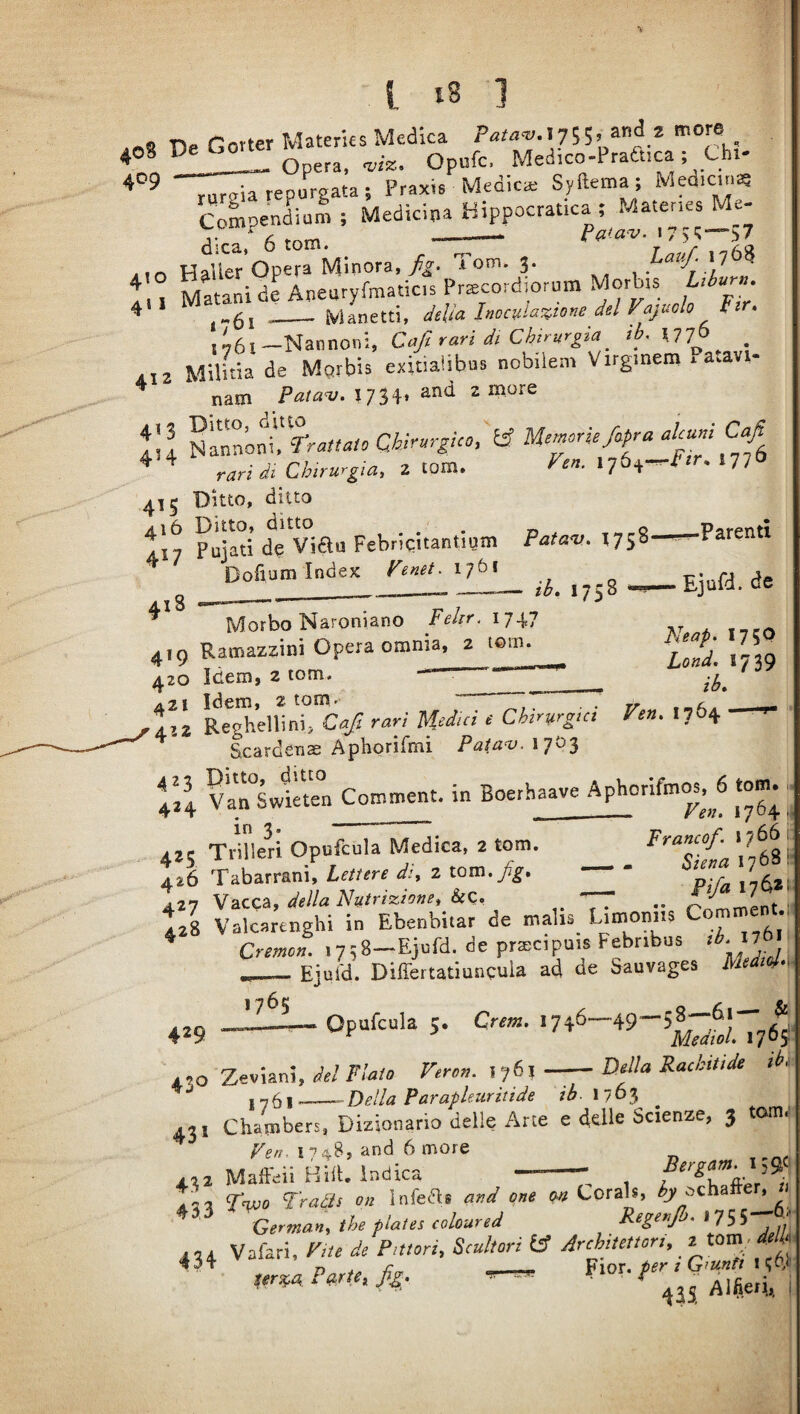 [ 18 ]
408 De Gorter Materies Medica Patav. 1755, and 2 more
409 ——— Opera, viz. Opuſc. Medico-Practica; Chi-
rurgia repurgata; Praxis Medicæ Syſtema; Medicinæ
Compendium; Medicina Hippocratica; Materies Me-
dica, 6 tom. ——— Patav. 1755—57
410 Haller Opera Minora, fig. Tom. 3. Lauſ. 1768
411 Matani de Aneuryſmaticis Præcordiorum Morbis Liburn.
1761 —— Manetti, della Inoculazione del Vajuolo Fir.
1761—Nannoni, Caſi rari di Chirurgia ib. 1776
412 Militia de Morbis exitialibus nobilem Virginem Patavi-
nam Patav. 1734, and 2 more
413 Ditto, ditto
414 Nannoni, Trattato Chirurgico, & Memorie ſopra alcuni Caſi
rari di Chirurgia, 2 tom. Ven. 1764—Fir. 1776
415 Ditto, ditto
416 Ditto, ditto
417 Pujati de Victu Febricitantium Patav. 1758——Parenti
Doſium Index Venet. 1761
418 ——————— ib. 1758 —— Ejuſd. de
Morbo Naroniano Feltr. 1747
419 Ramazzini Opera omnia, 2 tom. Neap. 1750
420 Idem, 2 tom. ——— Lond. 1739
421 Idem, 2 tom. ——— ib.
422 Reghellini, Caſi rari Medici e Chirurgici Ven. 1764 ——
Scardenæ Aphoriſmi Patav. 1703
423 Ditto, ditto
424 Van Swieten Comment. in Boerhaave Aphoriſmos, 6 tom.
in 3. ——— Ven. 1764
425 Trilleri Opuſcula Medica, 2 tom. Francof. 1766
426 Tabarrani, Lettere di, 2 tom. fig. —— Siena 1768
427 Vacca, della Nutrizione, &c. —— Piſa 1762
428 Valcarenghi in Ebenbitar de malis Limoniis Comment.
Cremon. 1758—Ejuſd. de præcipuis Febribus ib. 1761
—— Ejuſd. Diſſertatiuncula ad de Sauvages Mediol.
1765
429 ——— Opuſcula 5. Crem. 1746—49—58—61— &
Mediol. 1765
430 Zeviani, del Flato Veron. 1761 —— Della Rachitide ib.
1761 —— Della Parapleuritide ib. 1763
431 Chambers, Dizionario delle Arte e delle Scienze, 3 tom.
Ven. 1748, and 6 more
432 Maffeii Hiſt. Indica ——— Bergam. 1590
433 Two Tracts on Inſects and one on Corals, by Schaffer, in
German, the plates coloured Regenſb. 1755—6
434 Vaſari, Vite de Pittori, Scultori & Architettori, 2 tom. della
terza Parte, fig. —— Fior. per i Giunti 156
435 Alfieri,